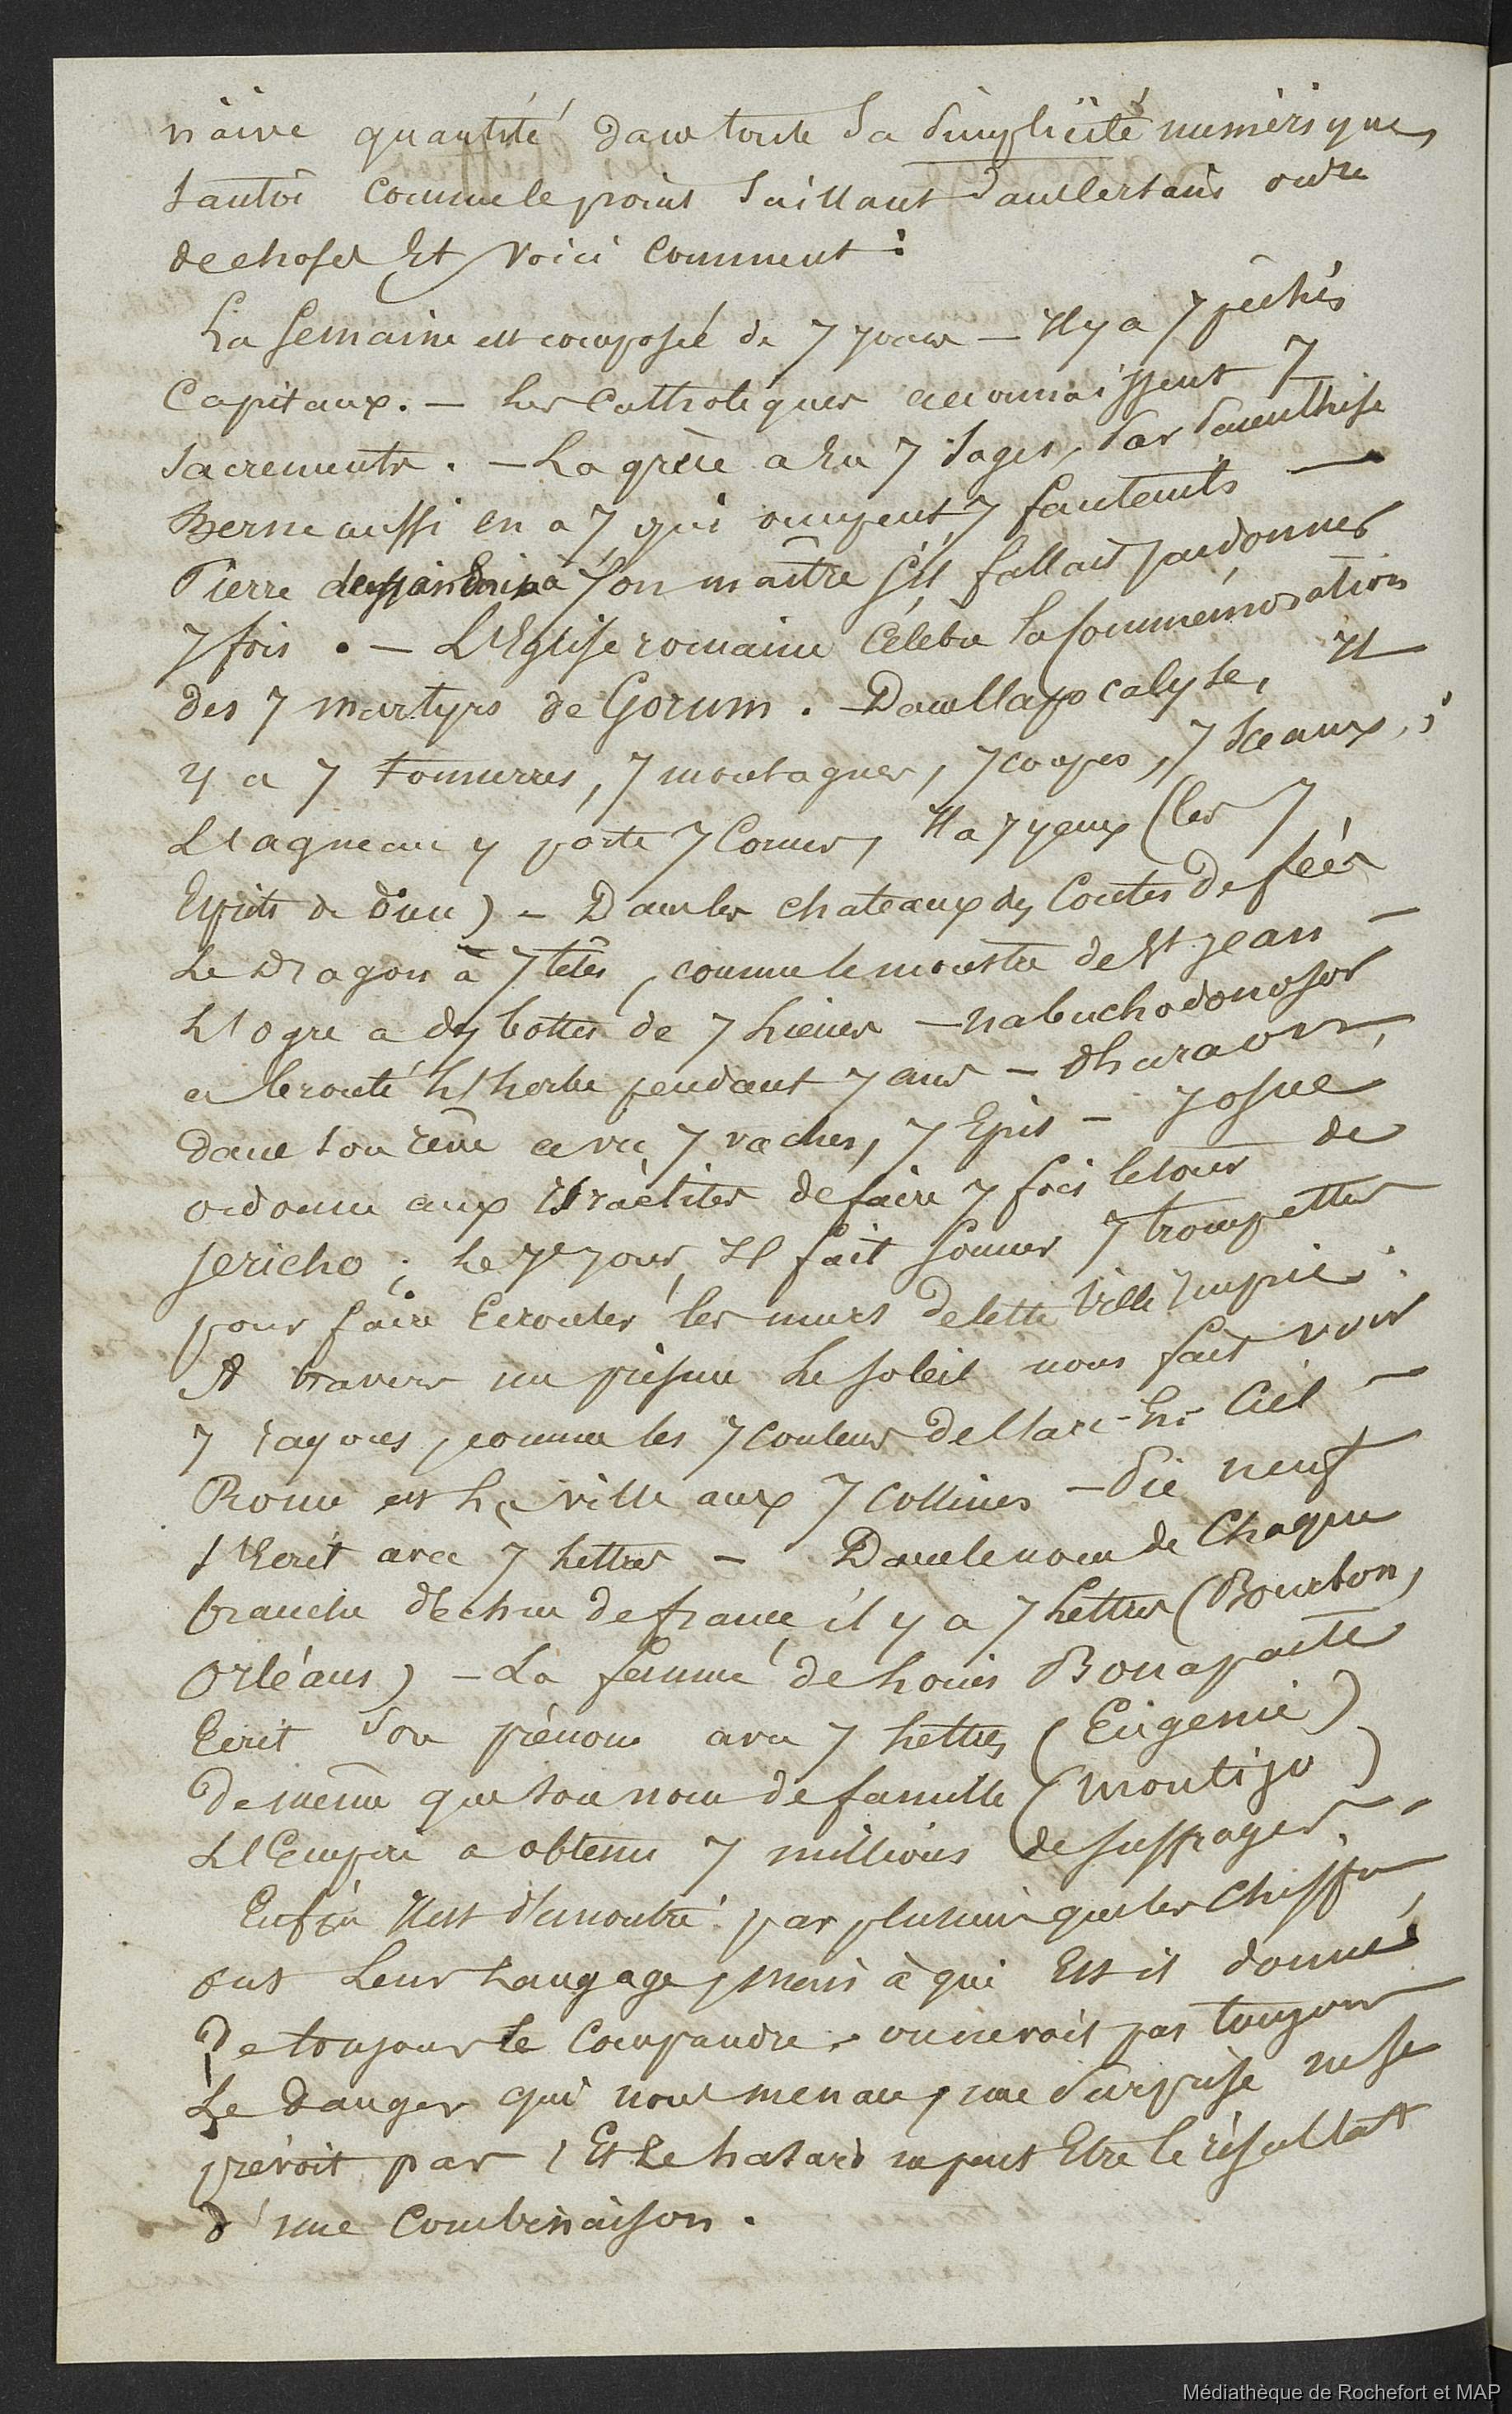 naïve quantité dans toute sa simplicité numérique,
tantôt comme le point saillant dans certains ordre
de choses Et voici comment :
La Semaine est composée de 7 jours — Il y a 7 péchés
Capitaux. — Les Catholiques reconnaissent 7
sacrements. — La grèce a Eu 7 sages, par parenthèse
Berne aussi en a 7 qui occupent 7 fauteuils —
Pierre à son maître s'il fallait pardonner
7 fois . — L'Eglise romaine Célèbre la Commémoration
des 7 martyrs de Gorum . — Dans l'apocalypse, Il
y a 7 tonnerres, 7 montagnes, 7 coupes, 7 sceaux,
L'agneau y porte 7 Cornes, Il a 7 yeux (les 7
Esprits de dieu) — Dans les chateaux des Contes de fées
Le Dragon à 7 têtes, comme le monstre de St jean —
L'ogre a des bottes de 7 Lieues — nabuchodonosor
a brouté L'herbe pendant 7 ans — Pharaon,
dans son rêve a vu 7 vaches, 7 Epis — Josué
ordonne aux Israëlites de faire 7 fois le tour de
Jericho ; Le 7e jour, Il fait sonner 7 trompettes
pour faire Ecrouler les murs de cette ville impie.
A travers un prisme Le soleil nous fait voir
7 rayons, comme les 7 couleurs de l'arc-En-Ciel —
Rome est La ville aux 7 collines — Pie neuf
s'Ecrit avec 7 Lettres — Dans le nom de Chaque
branche déchue de france il y a 7 Lettres (Bourbon,
Orléans) — La femme de Louis Bonaparte
Ecrit son prénom avec 7 Lettres (Eugenie)
De même que son nom de famille (Montijo)
L'Empire a obtenu 7 millions de suffrages. —
Enfin Il est démontré par plusieurs que les Chiffres
ont Leur Langage, mais à qui Est il donné
De toujours Le Comprendre. on ne voit pas toujours
Le danger qui nous menace, une surprise ne se
prévoit pas, Et Le hasard ne peut Etre le résultat
d'une Combinaison.
Médiathèque de Rochefort et MAP